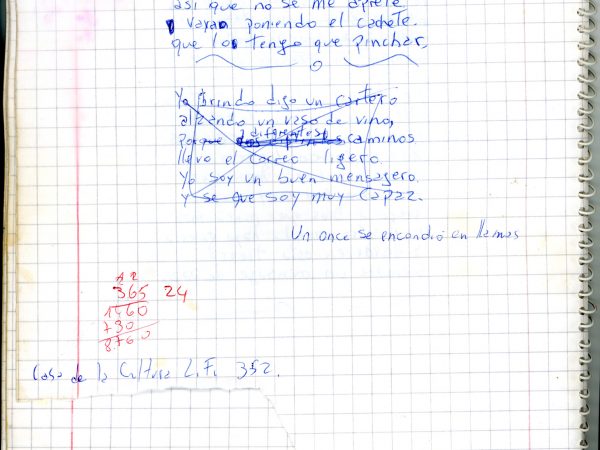 asi que no se me apriete
y vayan poniendo el cachete.
que los tengo que pinchar,
Yo brindo dijo un cartero
alzando un vaso de vino,
porque diferentes caminos
llevo el correo ligero.
Yo soy un buen mensagero.
y se que soy muy capaz.
Un once se encendió en llamas
12
365 24
1460
730
8760
Casa de la Cultura L.F. 352.